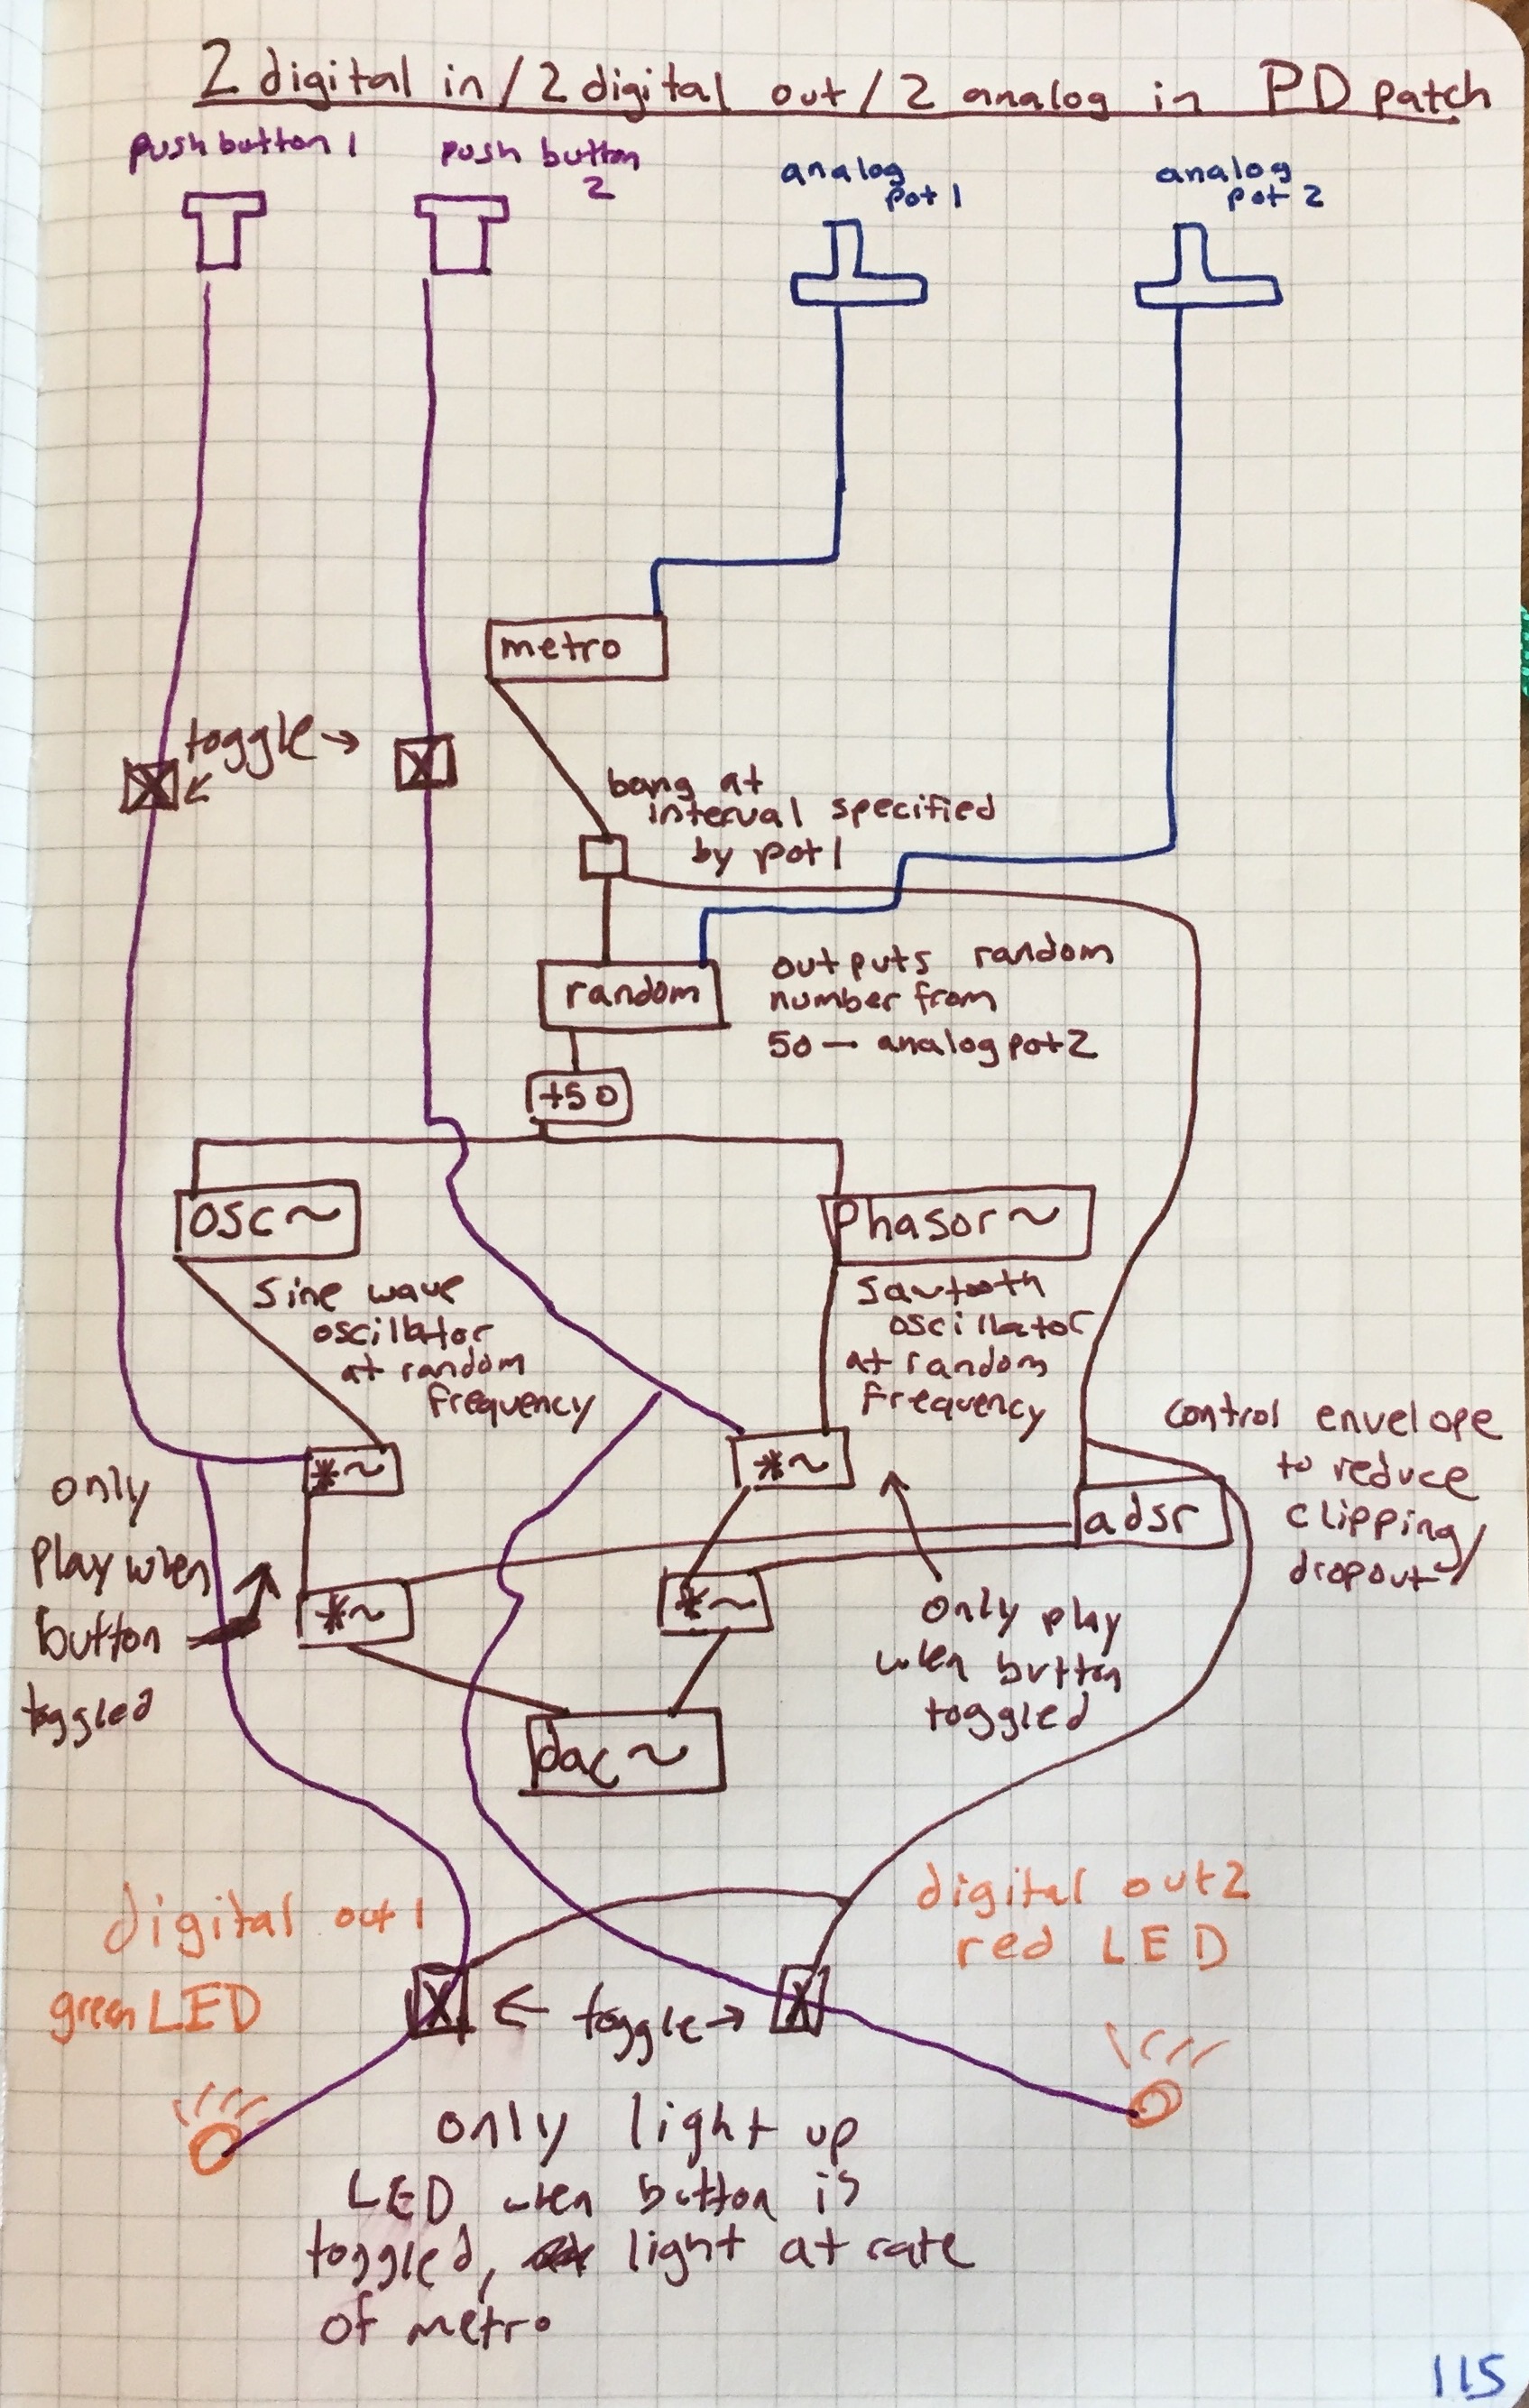 2 digital in/2 digital out/2 analog in PD patch
push button 1
push button
2
analog
pot 1
analog
pot 2
metro
toggle→
←
bang at
interval specified
by pot 1
random
outputs random
number from
50 — analog pot 2
+50
osc~
phasor~
Sine wave
oscillator
at random
frequency
Sawtooth
oscillator
at random
frequency
*~
*~
only
play when
button
toggled
control envelope
to reduce
clipping/
dropout
adsr
*~
*~
only play
when button
toggled
dac~
digital out 1
green LED
digital out 2
red LED
← toggle→
only light up
LED when button is
toggled, light at rate
of metro
115